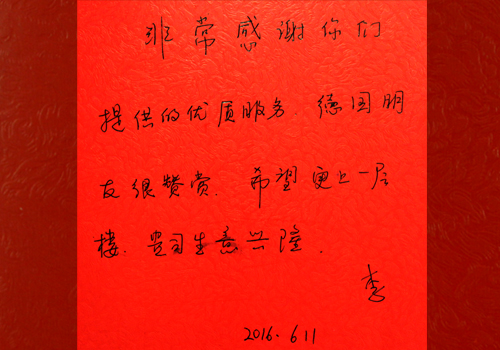 非常感谢你们
提供的优质服务. 德国朋
友很赞赏. 希望更上一层
楼. 贵司生意兴隆.
李
2016.611